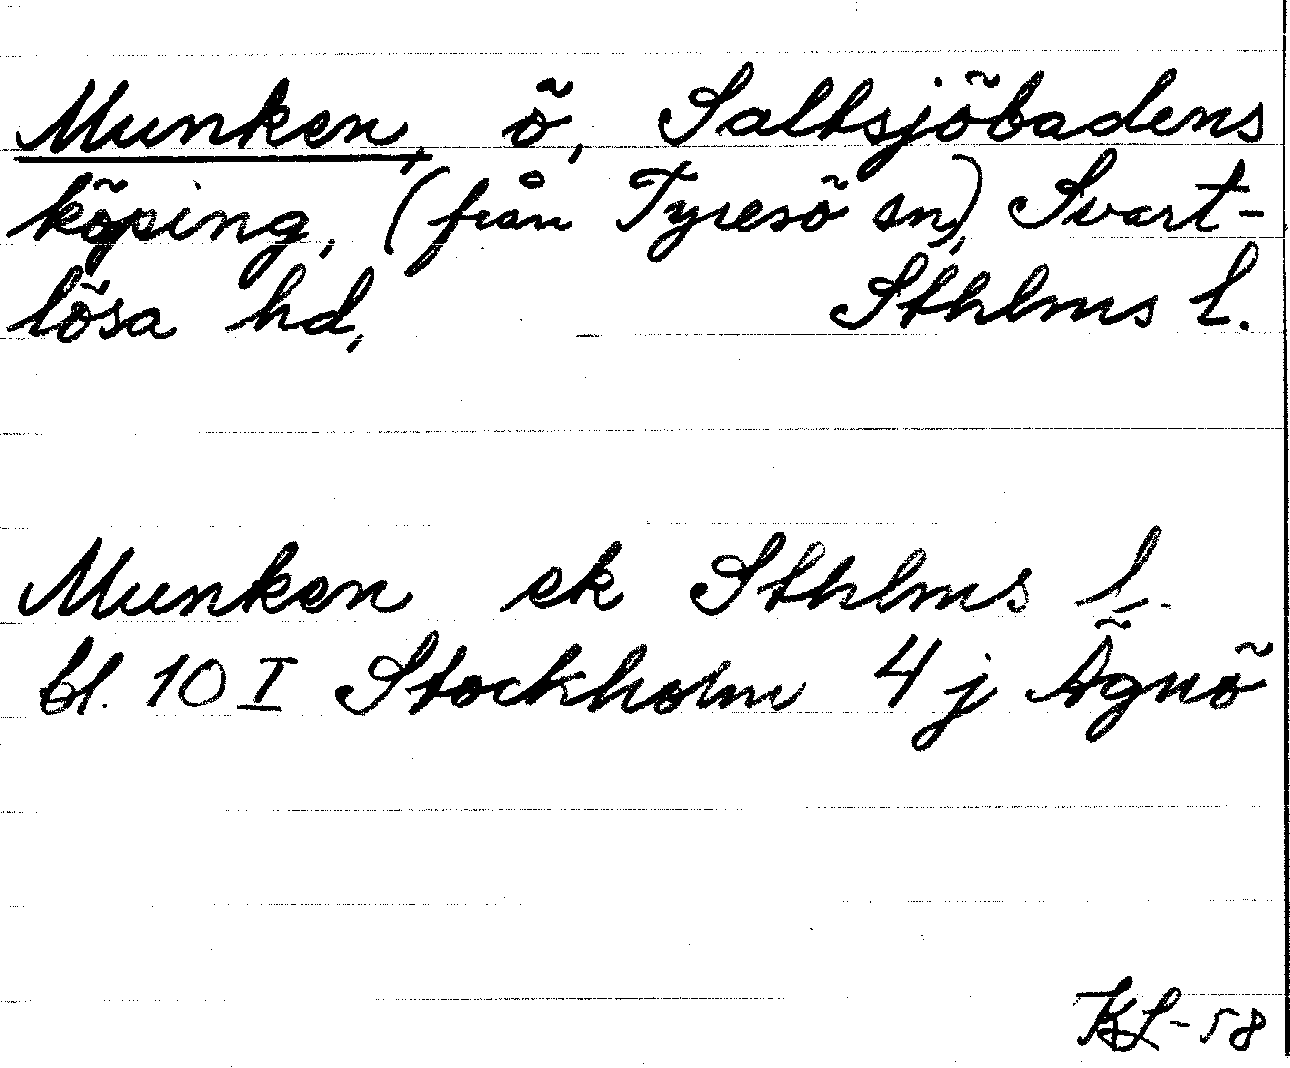 Munken, ö, Saltsjöbadens
köping, (från Tyresö sn), Svart-
lösa hd, Sthlms l.
Munken ek Sthlms l.
bl. 10 I Stockholm 4 j Ägnö
KL-58